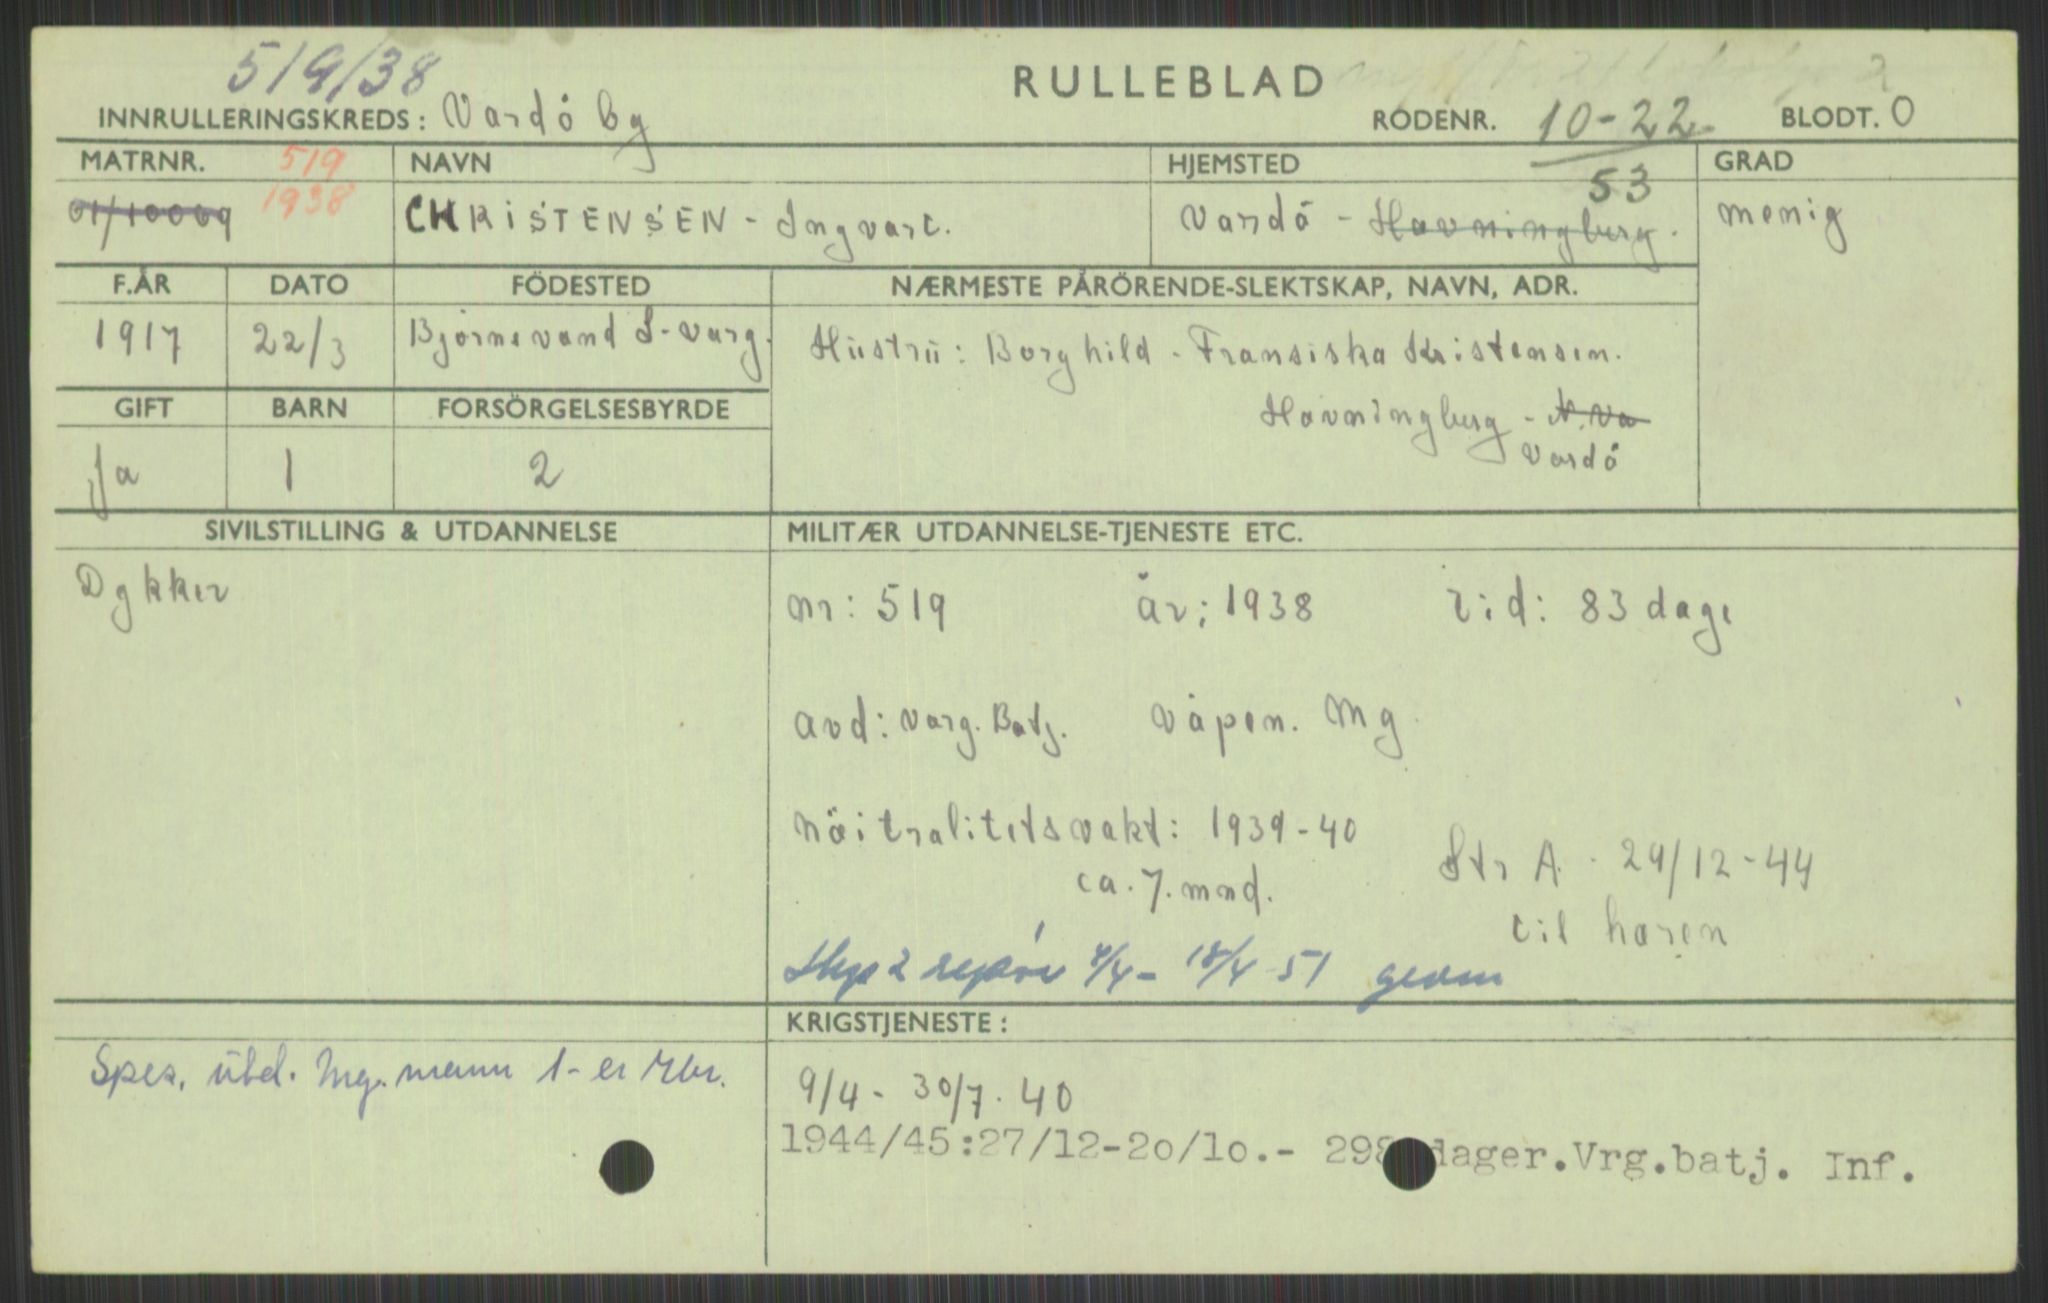 519/38
RULLEBLAD
INNRULLERINGSKREDS: Vardö by
RODENR. 10-22
53
BLODT. O
2
MATRNR. 519
1938
01/10009
NAVN
CHRISTENSEN - Ingvart.
HJEMSTED
Vardö - Havningberg.
GRAD
menig
F.ÅR
1917
DATO
22/3
FÖDESTED
Björnevand S-Varg.
NÆRMESTE PÅRÖRENDE-SLEKTSKAP, NAVN, ADR.
Hüstrü: Borghild - Fransiska Kristensen.
Havningberg - N. Va
Vardö
GIFT
Ja
BARN
1
FORSÖRGELSESBYRDE
2
SIVILSTILLING & UTDANNELSE
Dykker
MILITÆR UTDANNELSE-TJENESTE ETC.
nr: 519 år: 1938 tid: 83 dage
avd: Varg. Batj. Våpen. Mg.
Nöitralitetsvakt: 1939-40
ca. 7. mnd.
Str A. 29/12-44
til hæren
2 4/4 - 18/4 51
Spes. utd. Mg. mann
KRIGSTJENESTE:
9/4 - 30/7. 40
1944/45:27/12-20/10.- 298 dager.Vrg.batj. Inf.